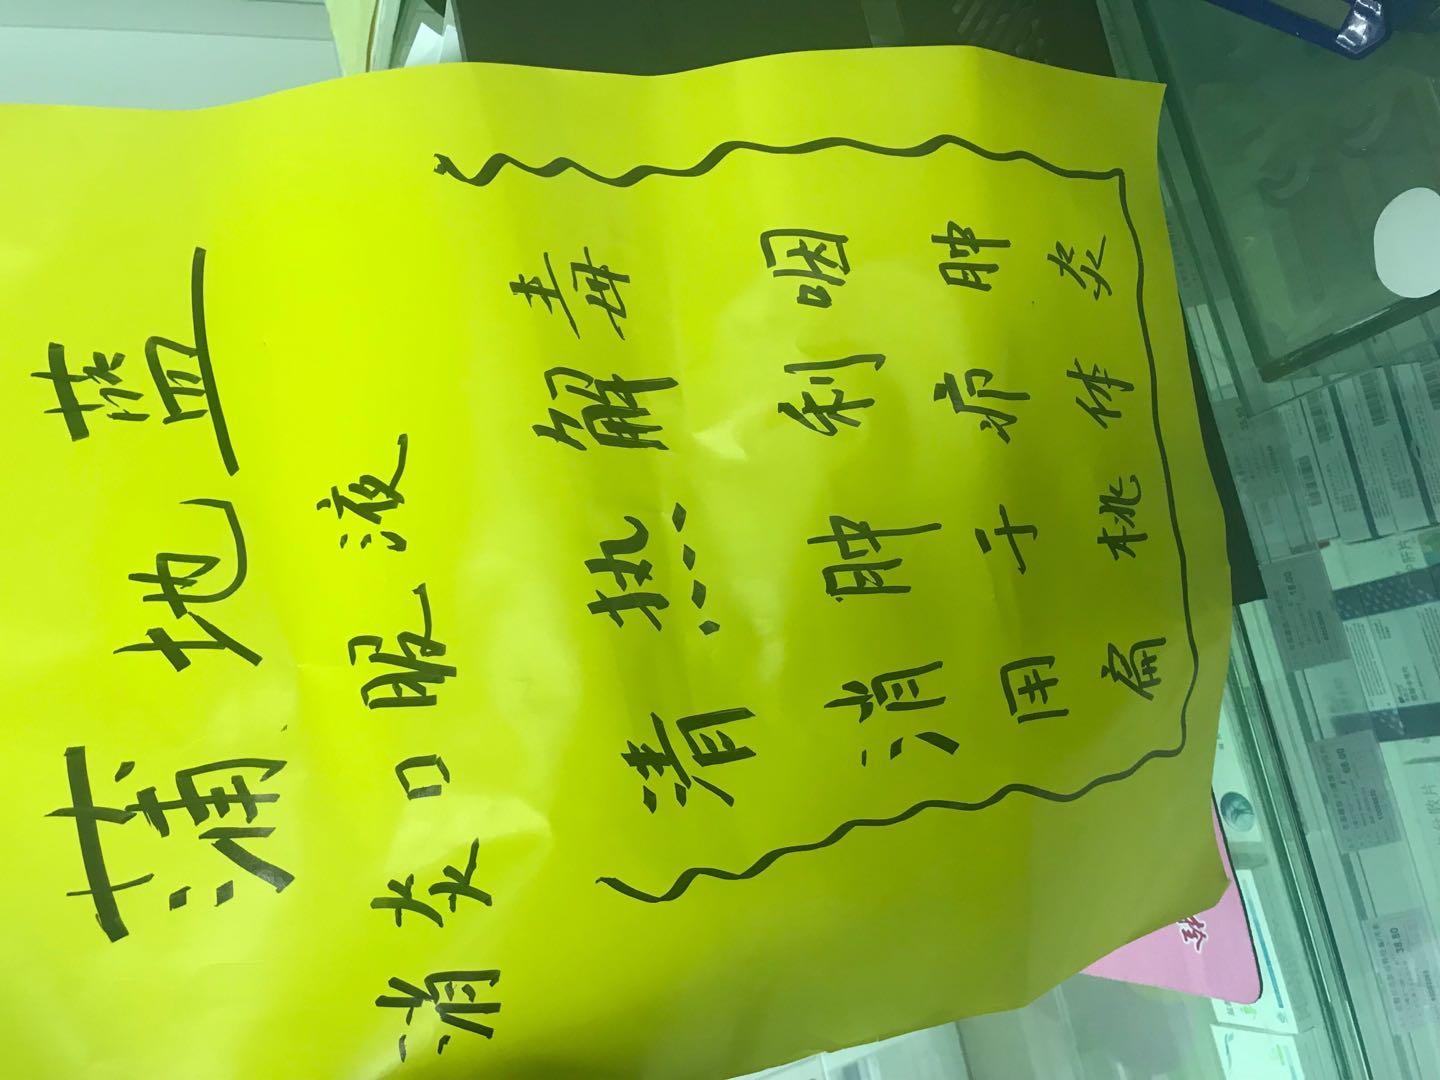 蒲地蓝
消炎口服液
清热解毒
消肿利咽
用于疖肿
扁桃体炎
38.80